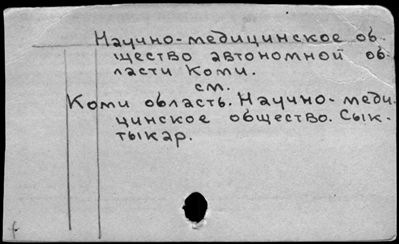 Научно-медицинское об-
щество автономной об-
ласти Коми.
см.
Коми область. Научно-меди-
цинское общество. Сык-
тыкар.